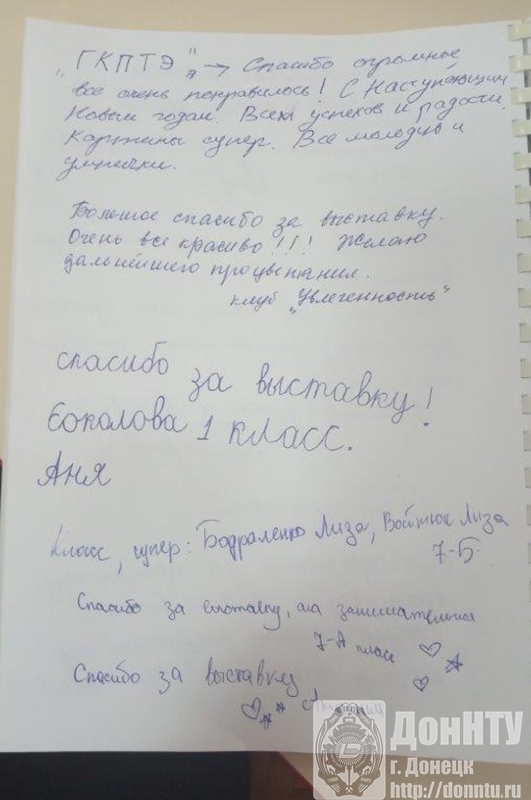 "ГКПТЭ" → Спасибо огромное
все очень понравилось! С Наступающим
Новым годом. Всем успехов и радости.
Картины супер. Все молодцы и
умнички.
Большое спасибо за выставку.
Очень все красиво!!! Желаю
дальнейшего процветания.
клуб "Увлеченность"
спасибо за выставку!
Соколова 1 класс.
Аня
Класс, супер: Бодраленко Лиза, Войтюк Лиза
7-Б.
Спасибо за выставку, она занимательная
7-А класс
Спасибо за выставку
ДонНТУ
г. Донецк
http://donntu.ru